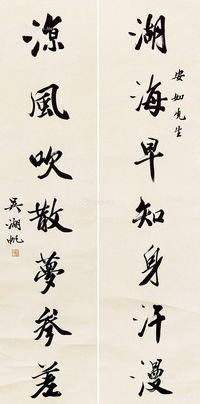 湖海早知身汗漫
安如先生
涼風吹散夢參差
吳湖帆